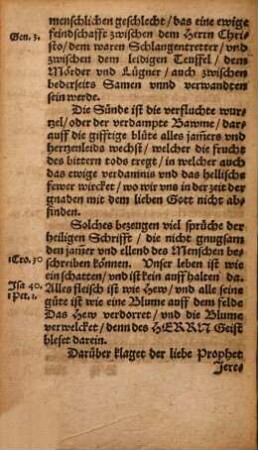 menschlichen geschlecht / das eine ewige
Gen. 3. feindschafft zwischen dem Herrn Chri-
sto / dem waren Schlangentretter / vnd
zwischen dem leidigen Teuffel / dem
Mörder vnd Lügner / auch zwischen
bederseits Samen vnnd verwandten
sein werde.
Die Sünde ist die verfluchte wur-
tzel / oder der verdampte Bawme / dar-
auff die gifftige blüte alles jam̃ers vnd
hertzenleids wechst / welcher die frucht
des bittern tods tregt / in welcher auch
das ewige verdamnis vnd das hellische
fewer wircket / wo wir vns in der zeit der
gnaden mit dem lieben Gott nicht ab-
finden.
Solches bezeugen viel sprüche der
heiligen Schrifft / die nicht gnugsam
den jam̃er vnd ellend des Menschen be-
1Cro. 30 schreiben können. Vnser leben ist wie
ein schatten / vnd ist kein auffhalten da.
Isa 40. Alles fleisch ist wie Hew / vnd alle seine
1 Pet. 1. güte ist wie eine Blume auff dem felde
Das Hew verdorret / vnd die Blume
verwelcket / denn des HERRN Geist
bleset darein.
Darüber klaget der liebe Prophet
Jere-